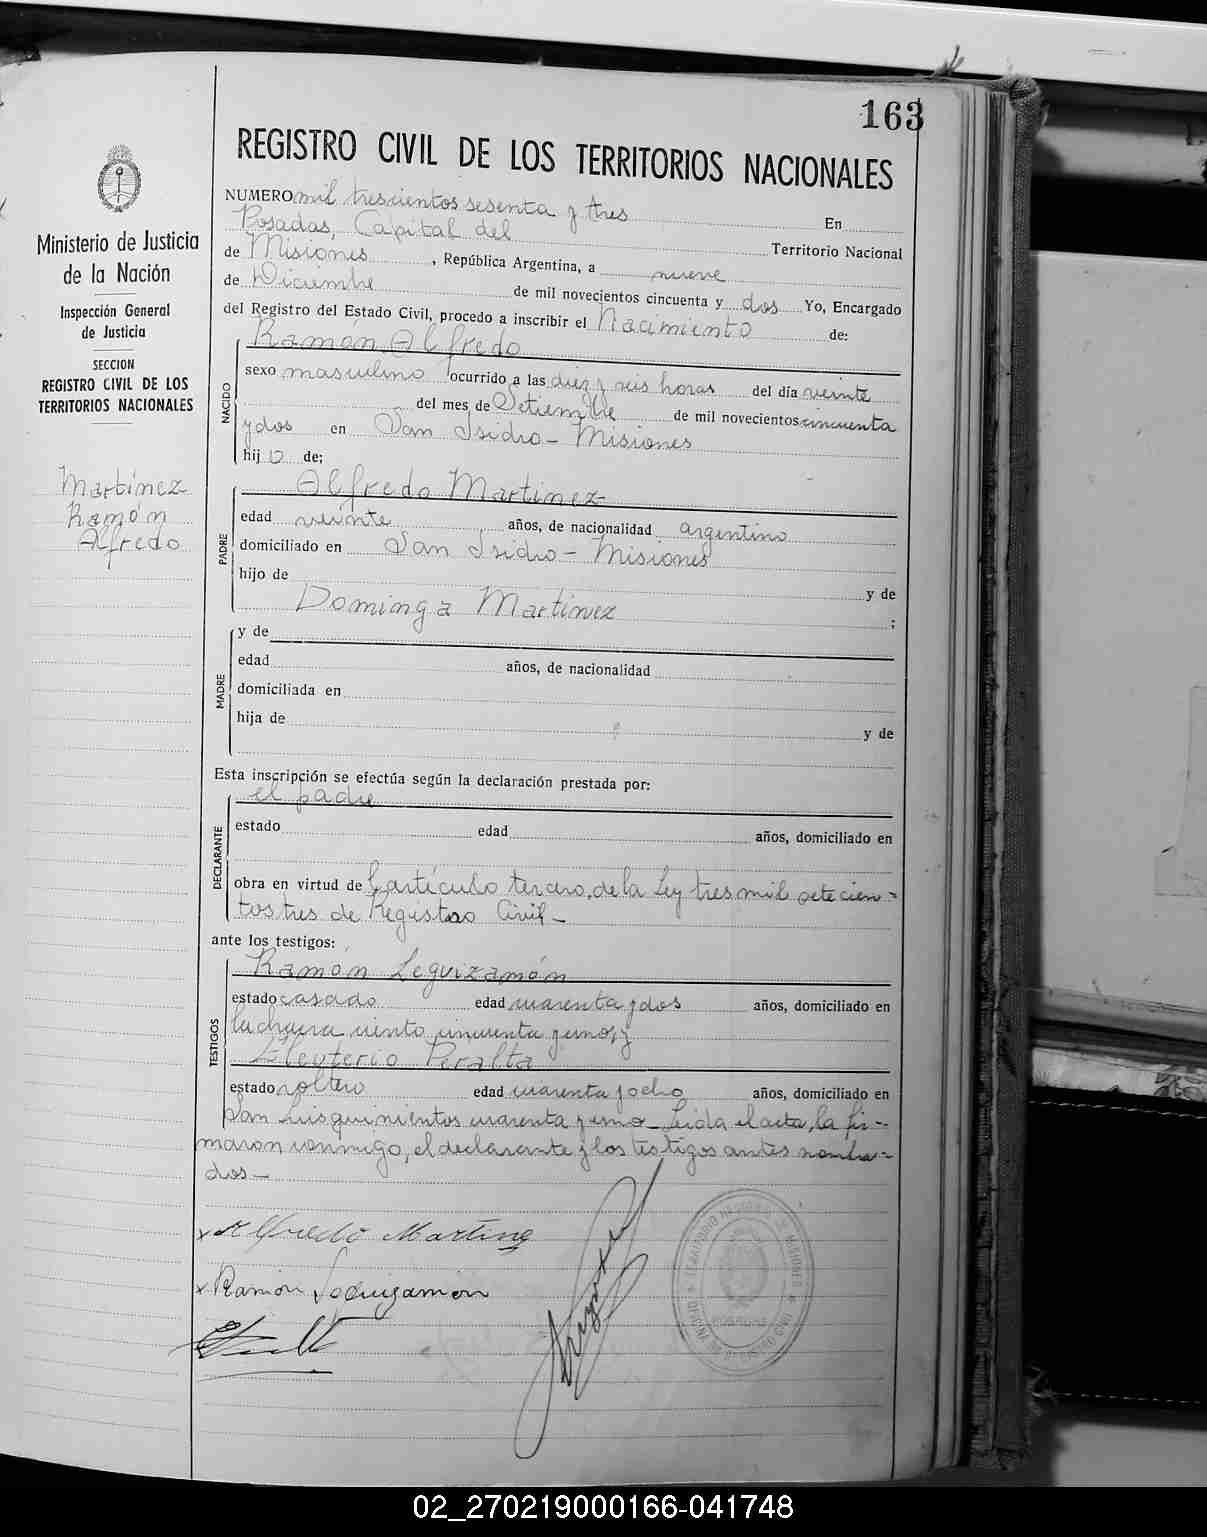 163
REGISTRO CIVIL DE LOS TERRITORIOS NACIONALES
Ministerio de Justicia
de la Nación
Inspección General
de Justicia
SECCION
REGISTRO CIVIL DE LOS
TERRITORIOS NACIONALES
Martínez
Ramón
Alfredo
NUMERO mil trescientos sesenta y tres En
Posadas, Capital del Territorio Nacional
de Misiones, República Argentina, a nueve
de Diciembre de mil novecientos cincuenta y dos Yo, Encargado
del Registro del Estado Civil, procedo a inscribir el Nacimiento de:
NACIDO
Ramón Alfredo
sexo masculino ocurrido a las diez y seis horas del día veinte
del mes de Setiembre de mil novecientos cincuenta
y dos en San Isidro - Misiones
hijo de:
PADRE
Alfredo Martínez
edad veinte años, de nacionalidad argentino
domiciliado en San Isidro - Misiones
hijo de y de
Dominga Martínez ;
MADRE
y de
edad años, de nacionalidad
domiciliada en
hija de y de
Esta inscripción se efectúa según la declaración prestada por:
DECLARANTE
el padre
estado edad años, domiciliado en
obra en virtud del artículo tercero, de la Ley tres mil setecien-
tos tres de Registro Civil -
ante los testigos:
TESTIGOS
Ramón Leguizamón
estado casado edad cuarenta y dos años, domiciliado en
la chacra ciento cincuenta y uno, y
Eleuterio Peralta
estado soltero edad cuarenta y ocho años, domiciliado en
San Luis quinientos cuarenta y uno - Leida el acta, la fir-
maron conmigo, el declarante y los testigos antes nombra-
dos -
x Alfredo Martinez
x Ramón Leguizamón
TERRITORIO NACIONAL DE MISIONES
POSADAS
OFICINA DE REGISTRO CIVIL
02_270219000166-041748